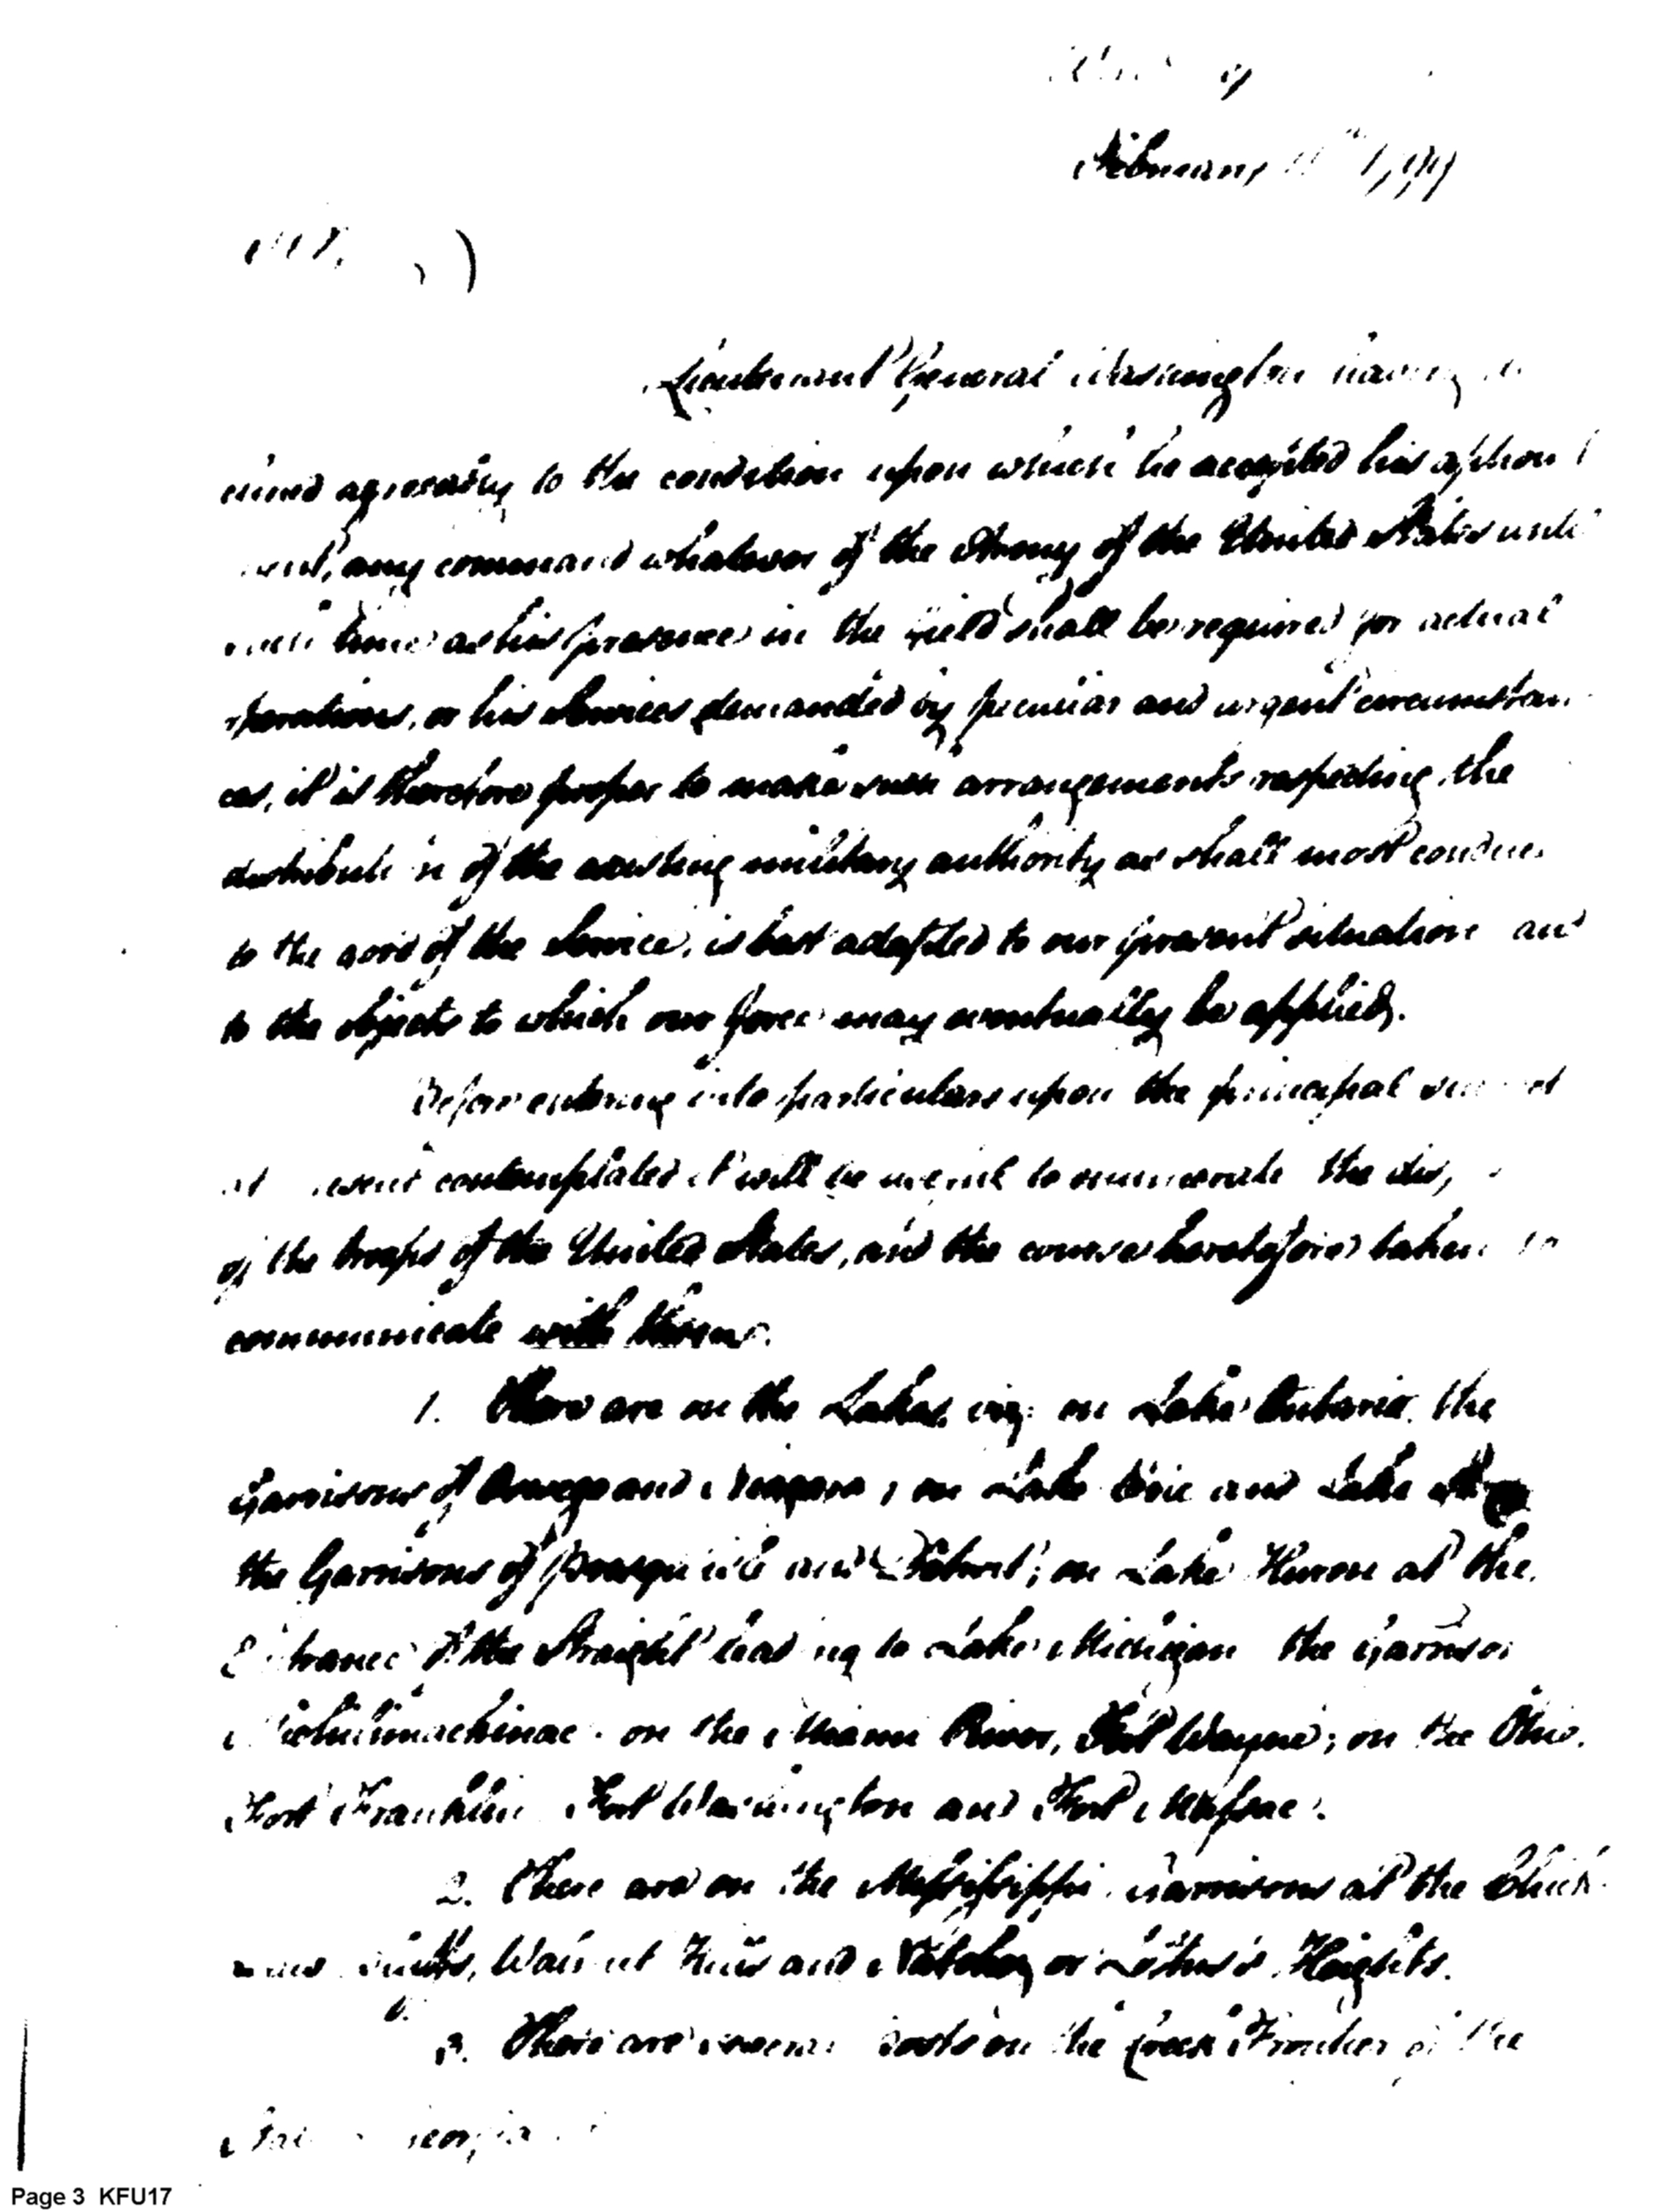 February 1799
Lieutenant General Washington having
agreeably to the condition upon which he accepted his appoint
any command whatever of the Army of the United States until
such time as his presence in the field shall be required for actual
operations, or his Services demanded by peculiar and urgent circumstan
ces, it is therefore proper to make such arrangements respecting the
distribution of the existing military authority as shall most conduce
to the good of the Service, is best adapted to our present situation and
to the objects to which our force may eventually be applied.
Before entering into particulars upon the principal
contemplated it will be to enumerate the
of the troops of the United States, and the course heretofore taken to
communicate with them.
1. There are on the Lakes, viz: on Lake Ontario, the
Garrisons of Oswego and Niagara, on Lake Erie and Lake
the Garrisons of Presqu isle and Detroit; on Lake Huron at the
Entrance of the Straight leading to Lake Michigan the Garrison
Michilimackinac. on the Miami River, Fort Wayne; on the Ohio.
Fort Franklin Fort Washington and Fort Massac.
2. There are on the Mississippi Garrisons at the Chick
Bluffs, Walnut Hills and Natchez or Loftus's Heights.
3. There are several posts on the Creek Frontier of the
Georgia
Page 3 KFU17